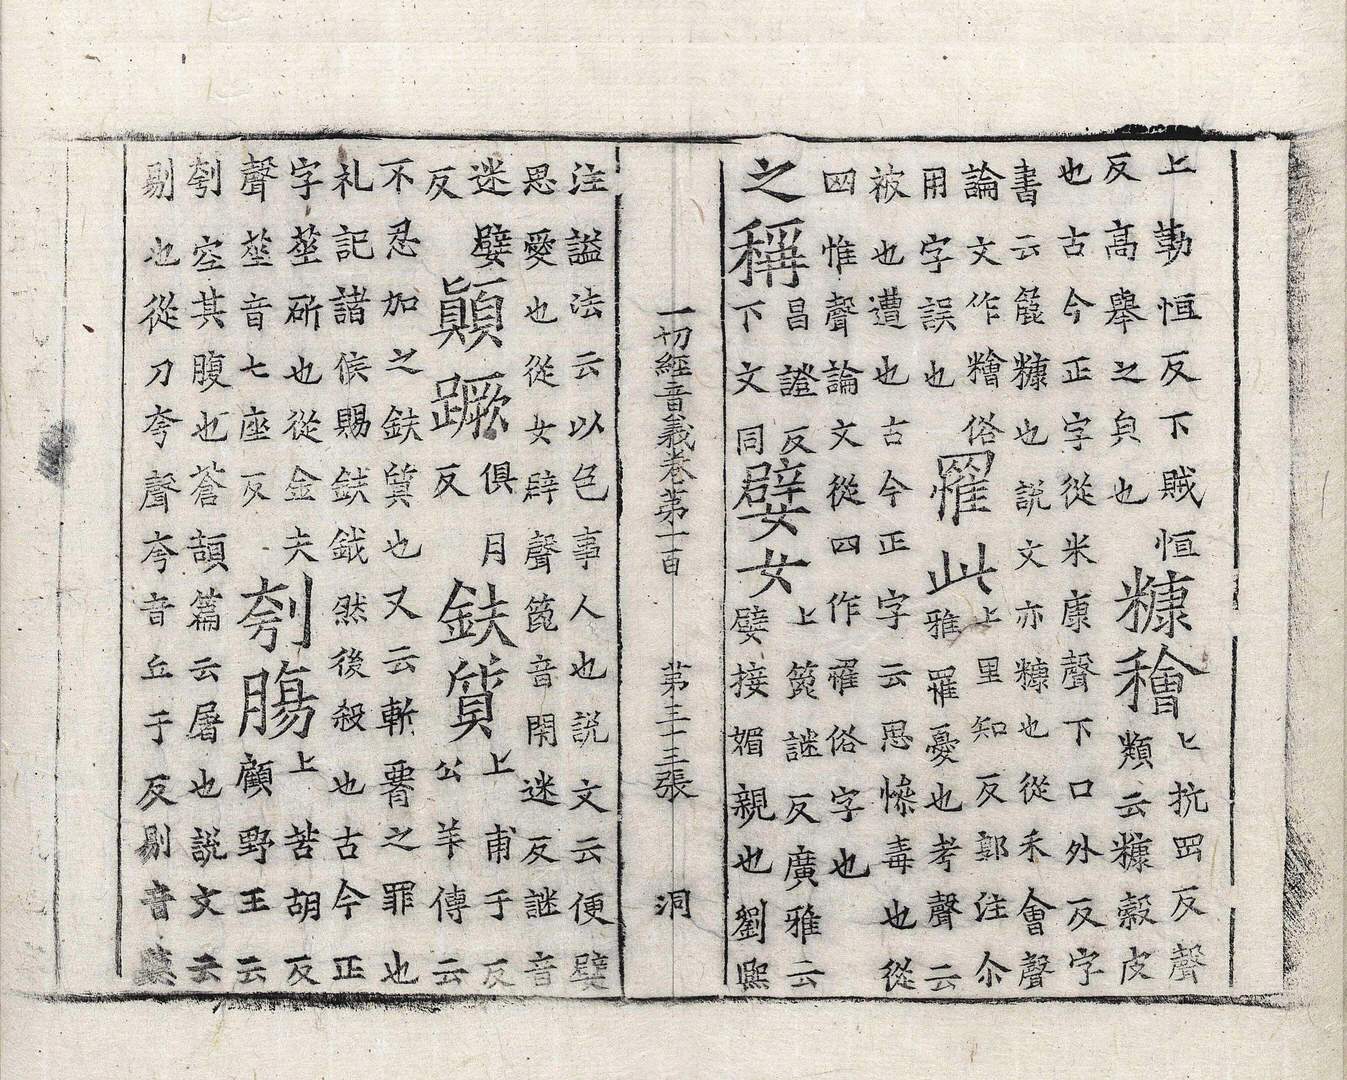 上勒恒反下賊恒
反高舉之皃也
糠穭
上抗岡反聲
類云糠穀皮
也古今正字從米康聲下口外反字
書云䴰糠也説文亦糠也從禾會聲
論文作䊦俗
用字誤也
罹此
上里知反鄭注尒
雅罹憂也考聲云
被也遭也古今正字云思慘毒也從
四惟聲論文從四作罹俗字也
之稱
昌證反
下文同
嬖女
上箆謎反廣雅云
嬖接媚親也劉熙
一切經音義卷第一百 第三十三張 洞
注謚法云以色事人也説文云便嬖
思愛也從女辟聲箆音閇迷反謎音
迷嬖
反
顛蹶
俱月
反
鈇質
上甫于反
公羊傳云
不忍加之鈇質也又云斬𦝫之罪也
礼記諸侯賜鈇鉞然後殺也古今正
字莝斫也從金夫
聲莝音七座反
刳腸
上苦胡反
顧野王云
刳空其腹也蒼頡篇云屠也説文云
剔也從刀夸聲夸音丘于反剔音